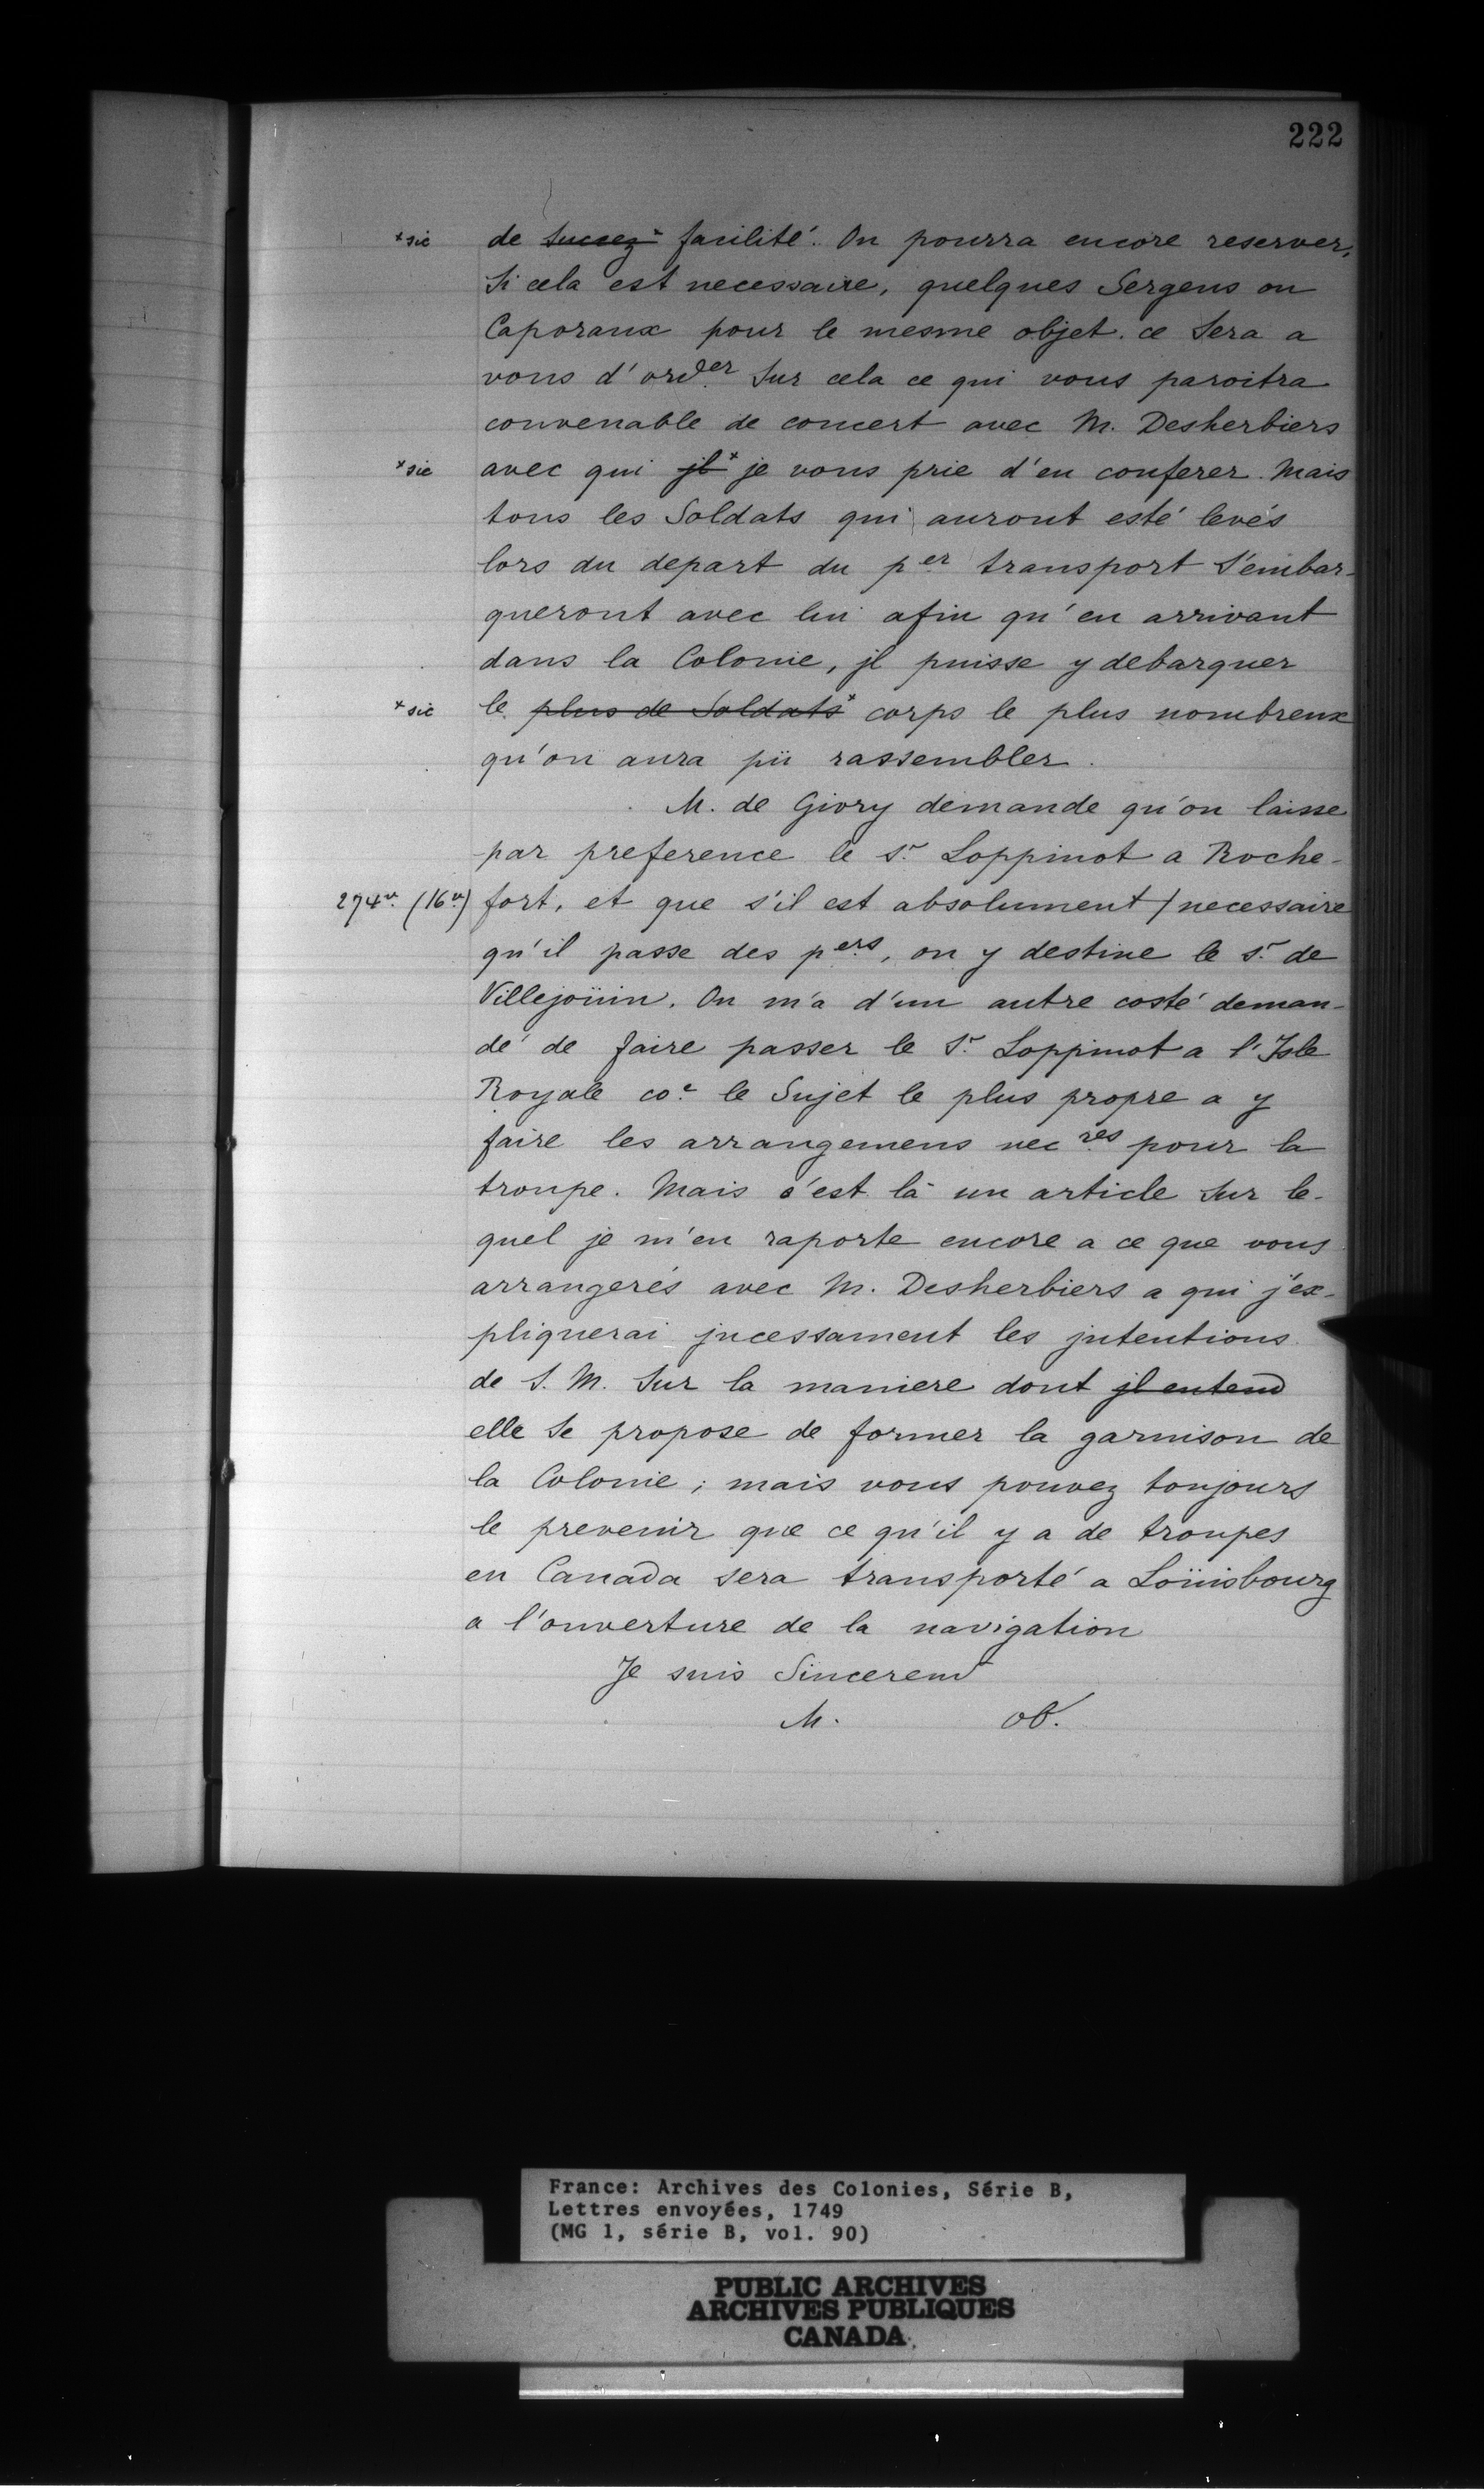 222
*sic de succez* facilité. On pourra encore reserver,
Si cela est necessaire, quelques Sergens ou
Caporaux pour le mesme objet. ce Sera a
vous d'ord.er Sur cela ce qui vous paroitra
convenable de concert avec M. Desherbiers
*sic avec qui jl* je vous prie d'en conferer. Mais
tous les Soldats qui auront esté levés
lors du depart du p.er transport S'embar-
queront avec lui afin qu'en arrivant
dans la Colonie, jl puisse y debarquer
*sic le plus de Soldats* corps le plus nombreux
qu'on aura pü rassembler.
M. de Givry demande qu'on laisse
par preference le S.r Loppinot a Roche-
274v. (16v.) fort, et que s'il est absolument / necessaire
qu'il passe des p.ers, on y destine le S.r de
Villejoüin. On m'a d'un autre costé deman-
dé de faire passer le S.r Loppinot a l'Isle
Royale co.e le Sujet le plus propre a y
faire les arrangemens nec.res pour la
troupe. Mais c'est là un article Sur le-
quel je m'en raporte encore a ce que vous
arrangerés avec M. Desherbiers a qui j'ex-
pliquerai jncessament les jntentions
de S. M. Sur la maniere dont jl entend
elle Se propose de former la garnison de
la Colonie; mais vous pouvez toujours
le prevenir que ce qu'il y a de troupes
en Canada sera transporté a Loüisbourg
a l'ouverture de la navigation
Je suis Sincerem.t
M. ob.
France: Archives des Colonies, Série B,
Lettres envoyées, 1749
(MG 1, série B, vol. 90)
PUBLIC ARCHIVES
ARCHIVES PUBLIQUES
CANADA